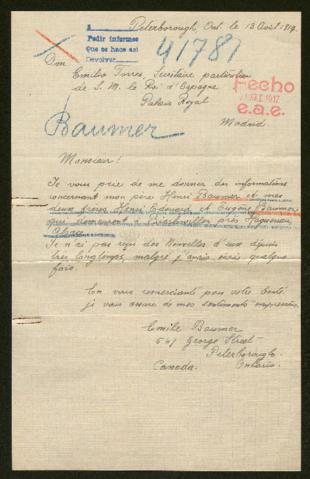 Peterborough, Ont. le 13 Août 1917.
A
Pedir informes
Que se hace así
Devolver
41781
Don
Emilio Torres, Secrétaire particulier
de S. M. le Roi d'Espagne
Palais Royal
Madrid
Fecho
1917
e.a.e.
Baumer
Monsieur!
Je vous prie de me donner des informations
concernant mon père Henri Baumer et mes
deux frères Henri Edouard et Eugène Baumer
qui demeurent à près Haguenau
Alsace
Je n'ai pas reçu des Nouvelles d'eux depuis
très longtemps, malgré j'aurais écris quelque
fois.
En vous remerciant pour votre bonté
je vous assure de mes sentiments
Emile Baumer
George Street
Peterborough
Canada. Ontario.